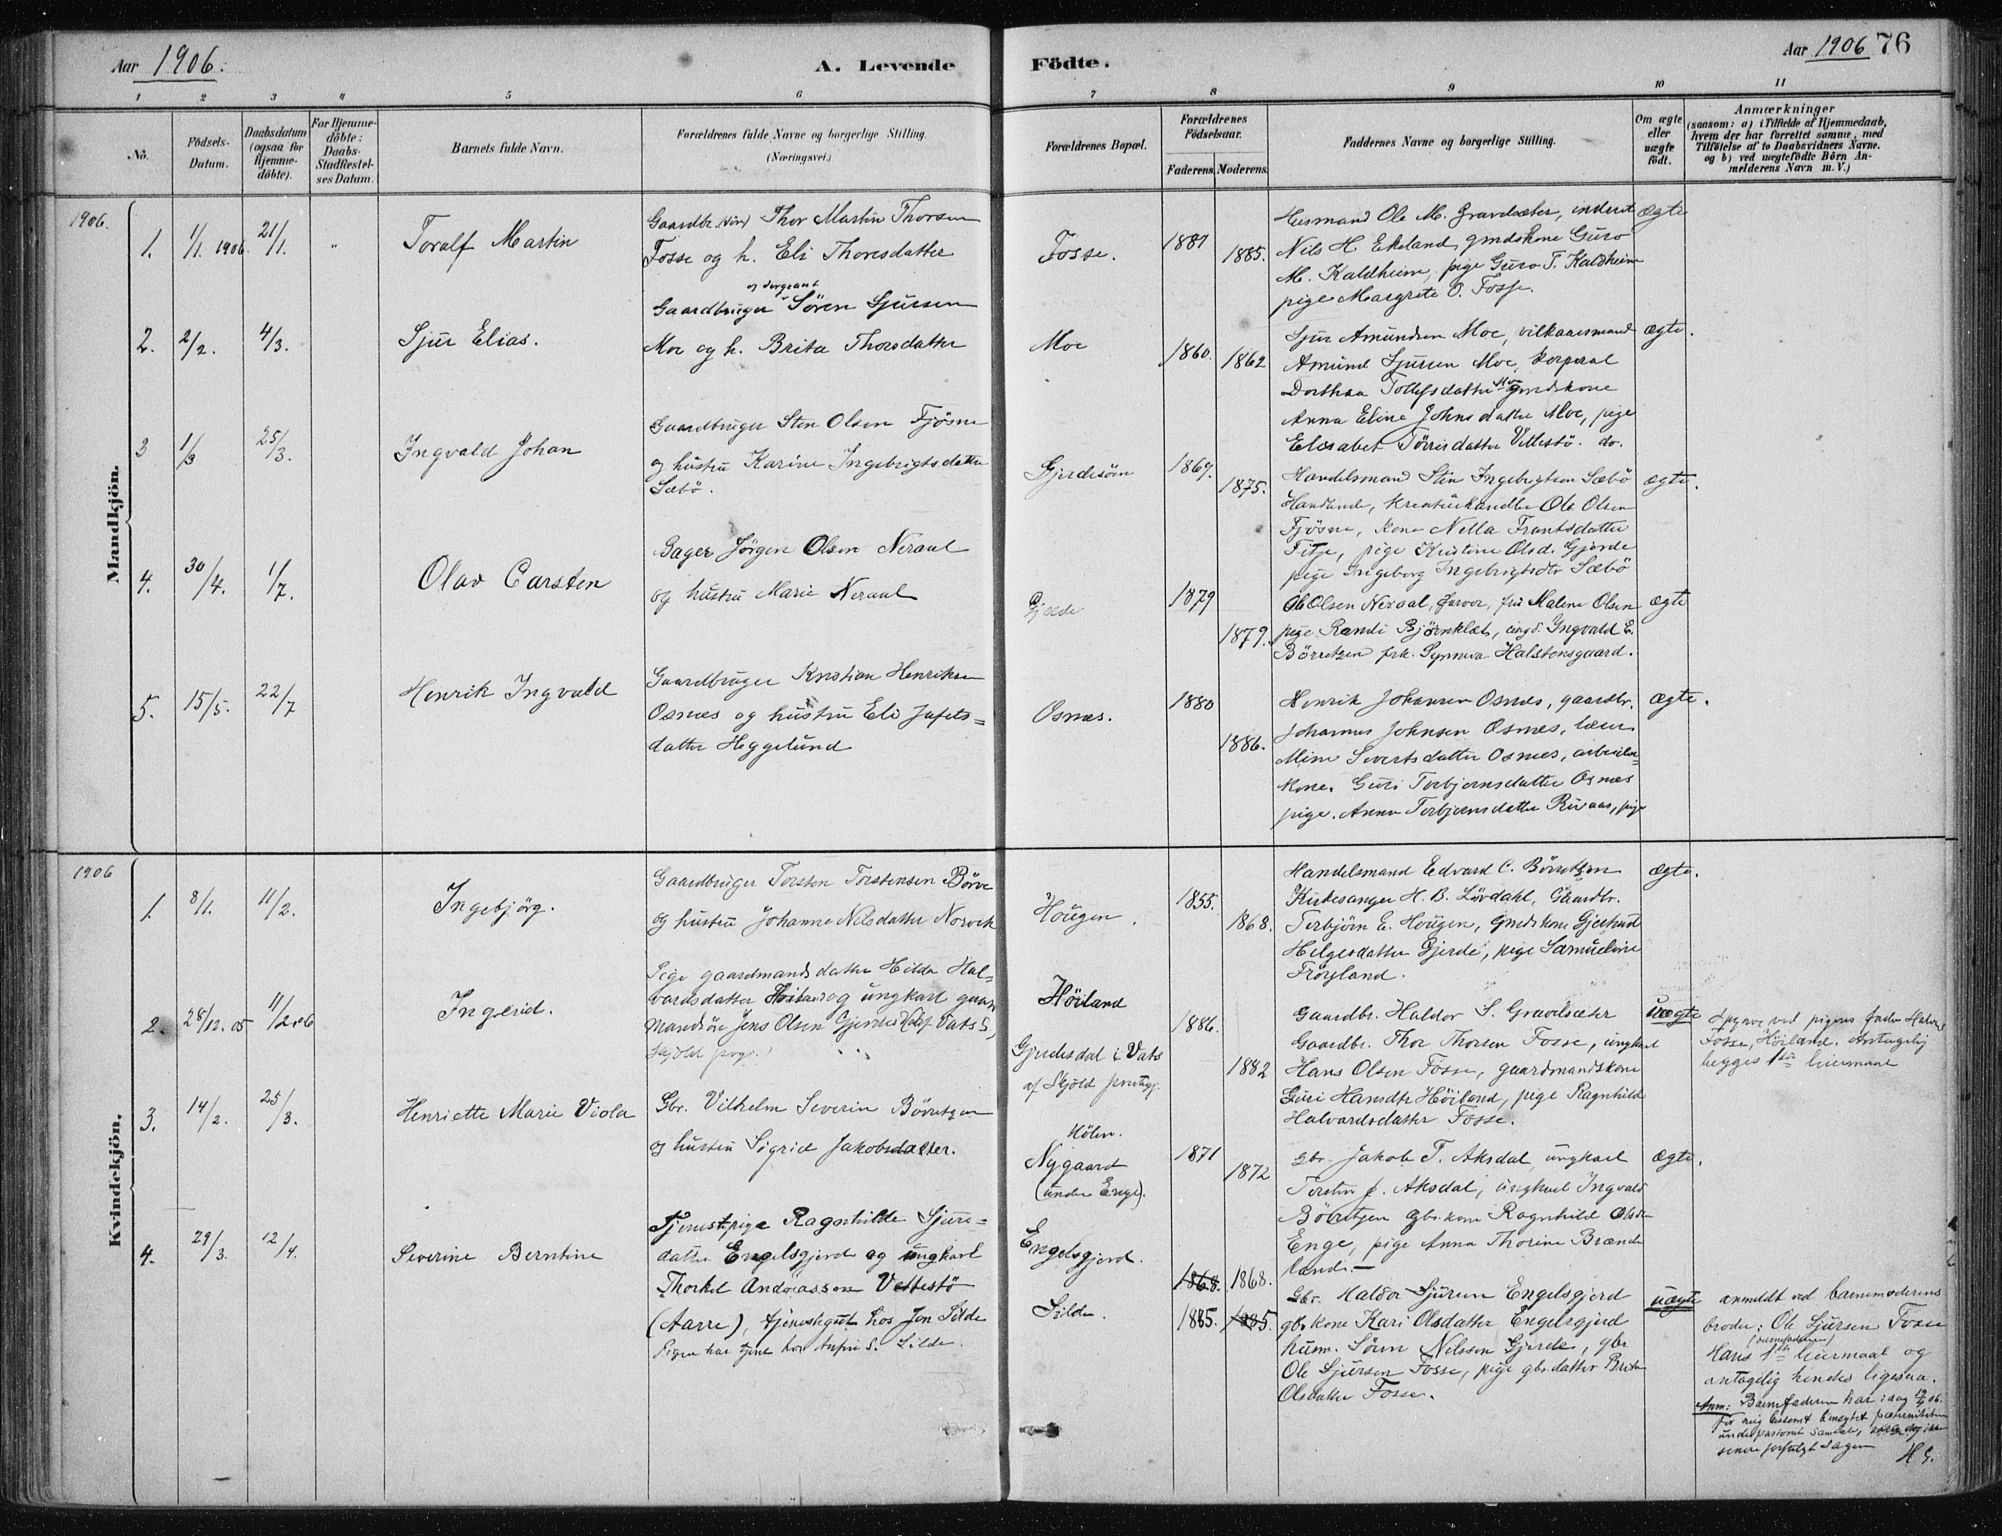 Aar 1906.
A. Levende
Födte.
Aar 1906 76
1 2 3 4 5 6 7 8 9 10 11
No.
Födsels-Datum.
Daabsdatum (ogsaa for Hjemme-döbte).
For Hjemme-döbte: Daabs-Stadfæstel-ses Datum.
Barnets fulde Navn.
Forældrenes fulde Navne og borgerlige Stilling.
(Næringsvei.)
Forældrenes Bopæl.
Forældrenes Födselsaar.
Faderens. Moderens.
Faddernes Navne og borgerlige Stilling.
Om ægte eller uægte födt.
Anmærkninger
(saasom: a) i Tilfælde af Hjemmedaab,
hvem der har forrettet samme, med
Tilföielse af to Daabsvidners Navne.
og b) ved uægtefödte Börn An-
melderens Navn m. V.)
Mandkjön.
1906.
1. 1/1 1906 21/1. "
Toralf Martin
Gaardbr. Thor Martin Thorsen
Fosse og h. Eli Thoresdatter
Fosse.
1881
1885.
Ole M. Gravelsæter, inderst
Nils H. Ekeland, gmdskone Guro
M. Kaldheim, pige Guro T. Kaldheim
pige Margrete O. Fosse.
ægte
2. 2/2. 4/3.
Sjur Elias.
og sergeant
Gaardbruger Sören Sjursen
Moe og h. Brita Thorsdatter
Moe
1860.
1862
Sjur Amundsen Moe, vilkaarsmand
Amund Sjursen Moe, korporal
Dorthea Tollefsdatter Moe gmdskone
Anna Eline Johnsdatter Moe, pige
Elisabet Törrisdatter Vettestö. do.
ægte.
3 1/3 25/3.
Ingvald Johan
Gaardbruger Sten Olsen Fjösne
og hustru Karine Ingebrigtsdatter
Sæbö.
Gjerdesöen
1869.
1875.
Handelsmand Sten Ingebrigtsen Sæbö
Handlende, kreaturhandler Ole Olsen
Fjösne, kone Nella Frantsdatter
Fitje, pige Kristine Olsd. Gjerde
pige Ingeborg Ingebrigtsdtr Sæbö
ægte.
4. 30/4. 1/7.
Olav Carsten
Bager Jörgen Olsen Neraal
og hustru Marie Neraal
Gjerde
1879
1879.
Ole Olsen Neraal, farver, fru Malene Olsen
pige Randi Björnklet, ungk. Ingvald E.
Börretzen frk. Synneva Halstensgaard.
ægte
5. 15/5. 22/7
Henrik Ingvald
Gaardbruger Kristian Henriksen
Osnæs og hustru Eli Jafets-
datter Heggelund
Osnæs.
1880
1886.
Henrik Johansen Osnæs, gaardbr.
Johannes Johnsen Osnæs, lærer
Mine Sivertsdatter Osnæs, arbeider-
kone. Guri Torbjörnsdatter Osnæs
pige. Anna Torbjörnsdatter Rivaas, pige
ægte.
Kvindekjön.
1906
1. 8/1. 11/2.
Ingebjörg.
Gaardbruger Torsten Torstensen Börve
og hustru Johanne Nilsdatter Norvik
Hougen.
1855.
1868.
Handelsmand Edvard C. Börretzen
Kirkesanger H. B. Lövdahl, Gaardbr.
Torbjörn E. Hougen, gmdskone Gjertrud
Helgesdatter Gjerde, pige Samueline
Fröyland.
ægte.
2. 28/12. 05 11/2.06
Ingerid.
Pige gaardmandsdatter Hilda Hal-
vardsdatter Höiland og ungkarl gaard-
mandsön Jens Olsen Gjerdesdal af Vats S,
Skjold prgj.
Höiland
Gjerdesdal i Vats
af Skjold prestgj.
1886.
1882
Gaardbr. Haldor S. Gravelsæter
Gaardbr. Thor Thorsen Fosse, ungkarl
Hans Olsen Fosse, gaardmandskone
Guri Hansdtr Höiland, pige Ragnhild
Halvardsdatter Fosse.
uægte
Opgave ved pigens fader Halvor
Fosse, Höiland. Antagelig
begges 1ste leiermaal
3. 14/2. 25/3.
Henriette Marie Viola
Gbr. Vilhelm Severin Börretzen
og hustru Sigrid Jakobsdatter.
Hölen.
Nygaard
(under Enge).
1871
1872
Gbr. Jakob T. Aksdal, ungkarl
Torsten J. Aksdal, ungkarl Ingvald
Börretzen gbr.kone Ragnhild Olsdtr
Enge, pige Anna Thorine Brænde
land.—
ægte.
4. 29/3. 12/4.
Severine Berntine
Tjenestpige Ragnhilde Sjurs-
datter Engelsgjerd og ungkarl
Thorkel Andreassen Vettestö
(Aarre), tjenestegut hos Jon Silde
Pigen har tjent hos S. Silde.
Engelsgjerd.
Silde
1868. 1868.
1885. 1885.
Gbr. Haldor Sjursen Engelsgjerd
gbr kone Kari Olsdatter Engelsgjerd
husm. Sören Nilssen Gjerde, gbr
Ole Sjursen Fosse, pige gbr.datter Brita
Olsdatter Fosse.
uægte
anmeldt ved barnemoderens
broder: Ole Sjursen Fosse
(barnefaderen)
Hans 1ste leiermaal og
antagelig hendes ligesaa.
Anm: Barnefaderen har i dag 06.
for mig bestemt benegtet paterniteten
under pastoral samtale, dog ikke
senere forfulgt sagen
H G.